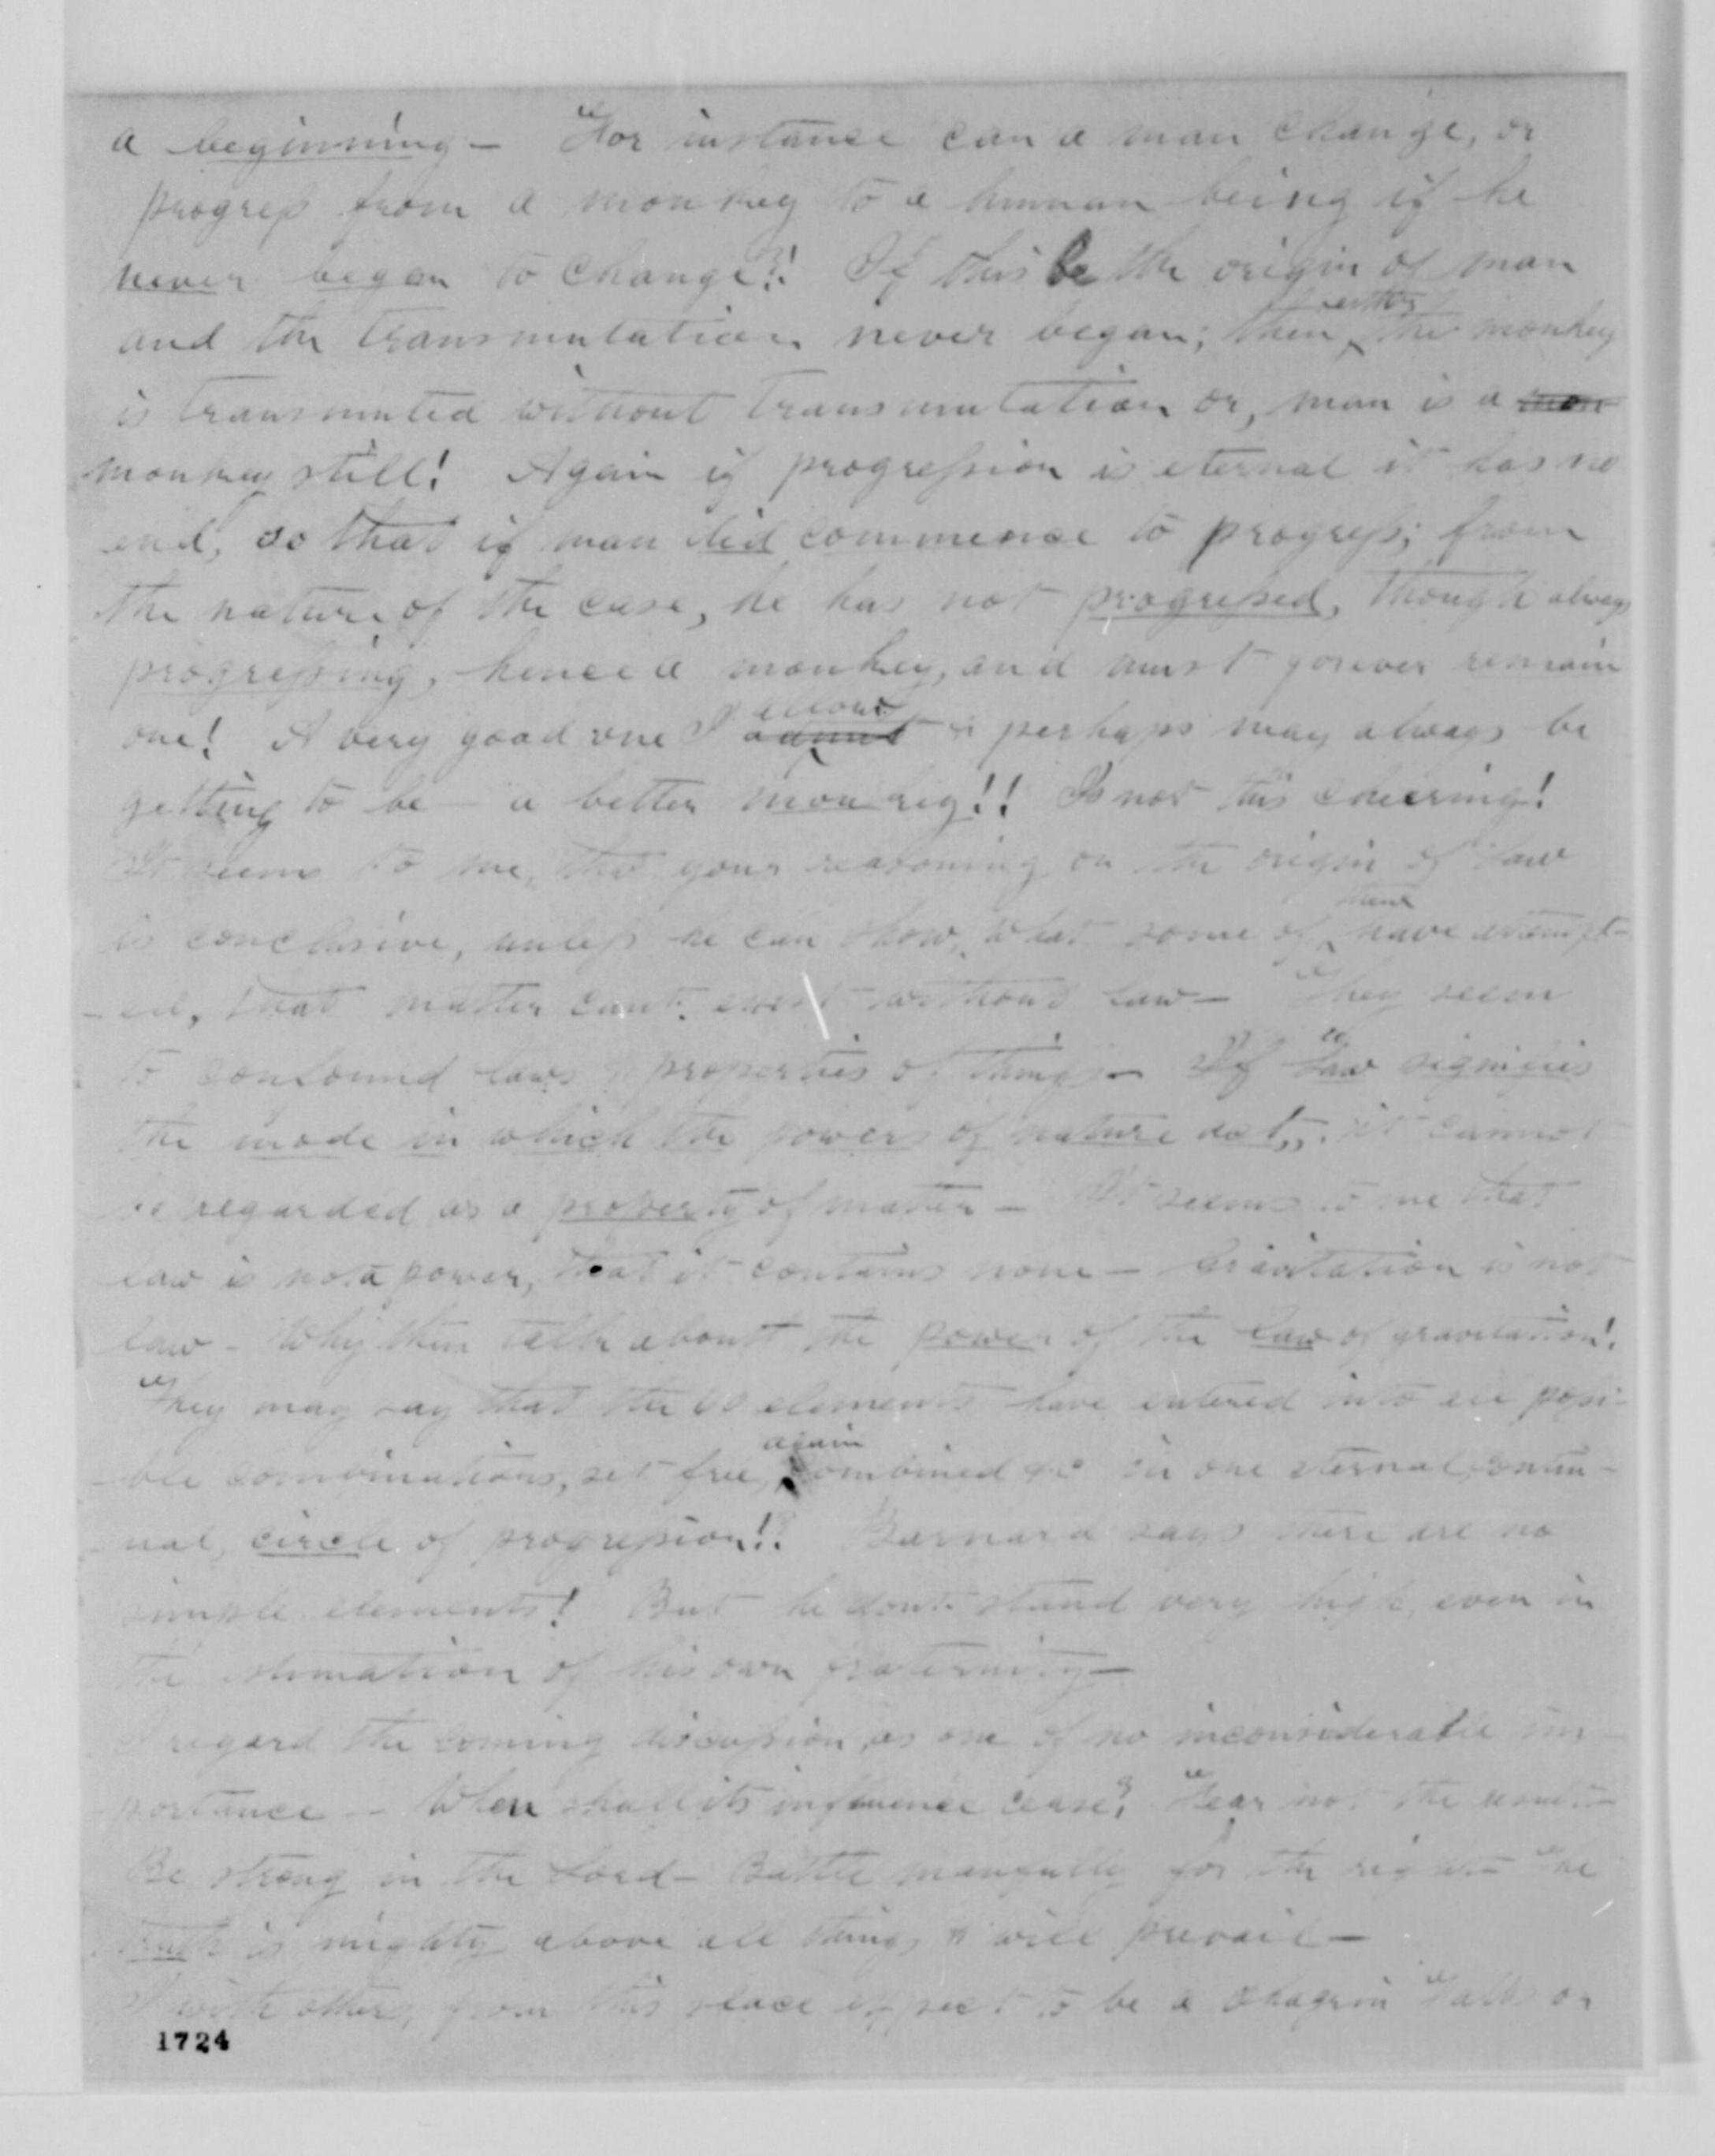 a beginning - For instance can a man change, or
progress from a monkey to a human being if he
never began to change?! If this be the origin of man
and the transmutation never began; then either the monkey
is transmuted without transmutation or, man is a mon
monkey still! Again if progression is eternal it has no
end, so that if man did commence to progress; from
the nature of the case, he has not progressed, though always
progressing, hence a monkey, and must forever remain
one! A very good one I admit allow & perhaps may always be
getting to be - a better monkey!! Is not this cheering!
It seems to me, that your reasoning on the origin of law
is conclusive, unless he can show, what some of them have attempt-
-ed, that matter cant. exist without law - They seem
to confound laws & properties of things - If law signifies
the mode in which the powers of nature act,, it cannot
be regarded as a property of matter - It seems to me that
law is not a power, that it contains none - Gravitation is not
law - Why then talk about the power of the law of gravitation!
They may say that the 60 elements have entered into all possi-
-ble combinations, set free, again combined &c in one eternal, contin-
-ual, circle of progression!? Barnard says there are no
simple elements! But he dont. stand very high, even in
the estimation of his own fraternity -
I regard the coming discussion, as one of no inconsiderable im-
-portance - When shall its influence cease? Fear not the result -
Be strong in the Lord - Battle manfully for the right - The
truth is mighty above all things & will prevail -
I with others, from this place expect to be a Chagrin Falls on
1724